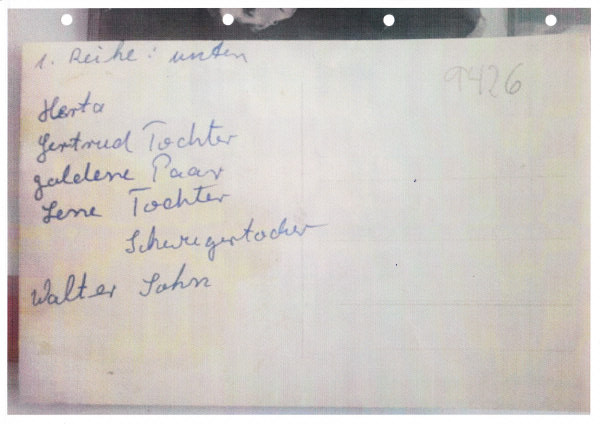 1. Reihe: unten
9426
Herta
Gertrud Tochter
goldene Paar
Lene Tochter
Schwiegertocher
Walter Sohn